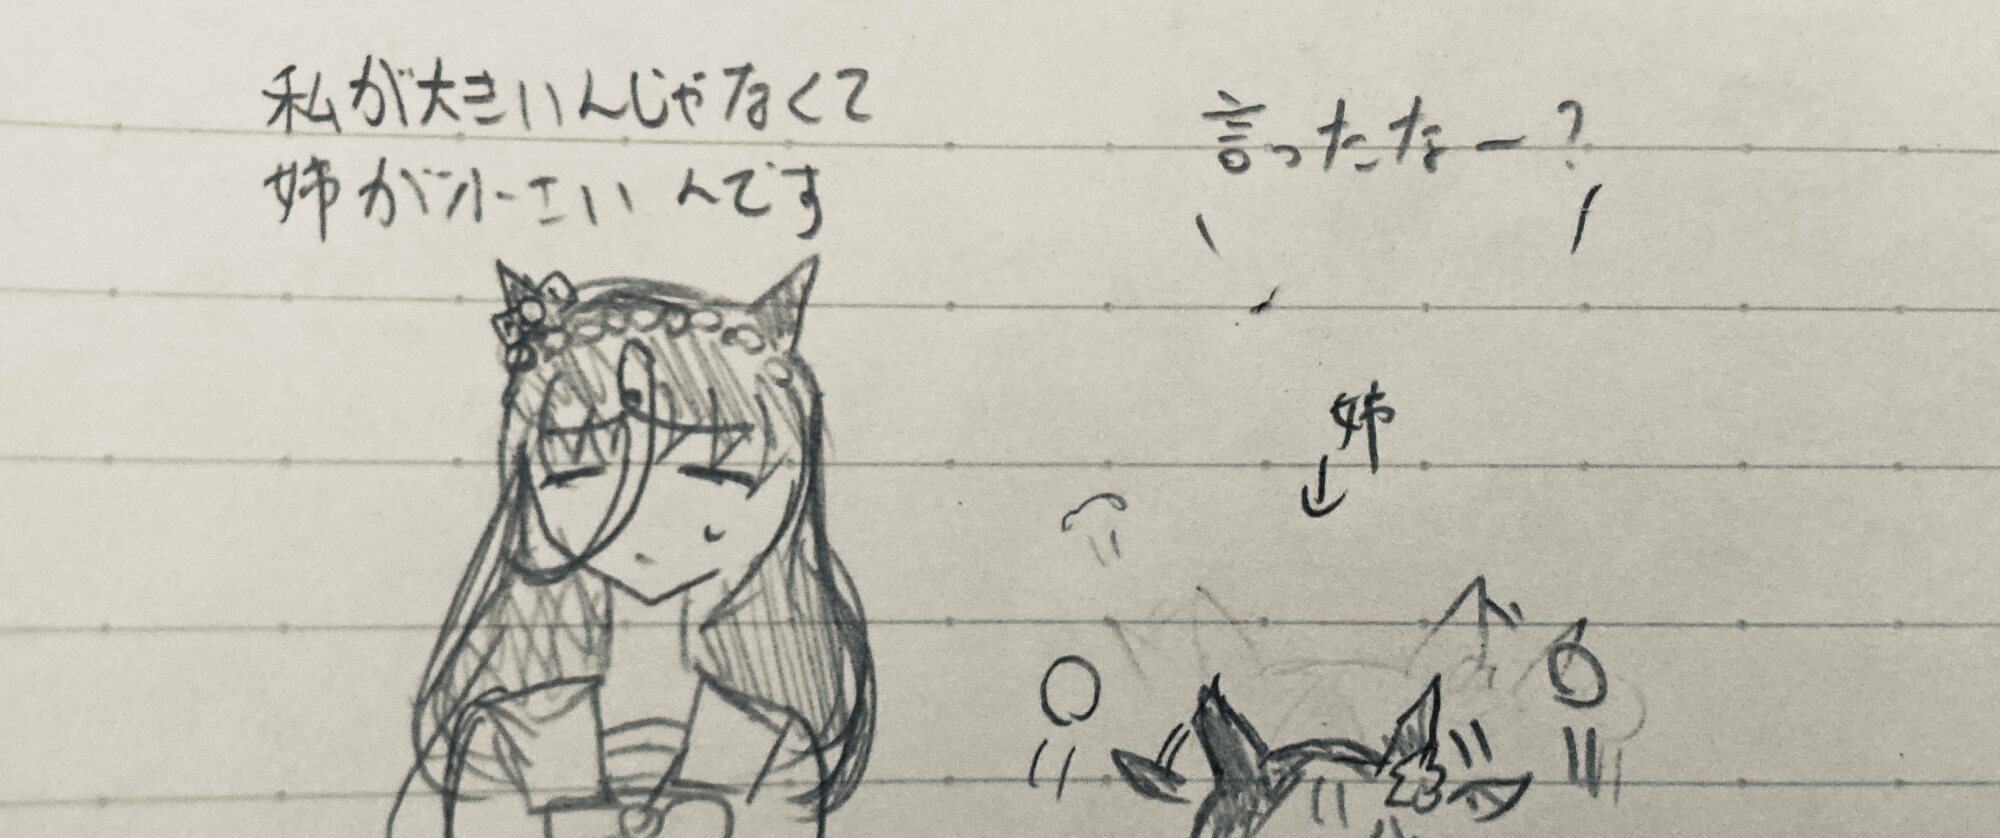 私が大きいんじゃなくて
姉が小さいんです
言ったなー?
姉